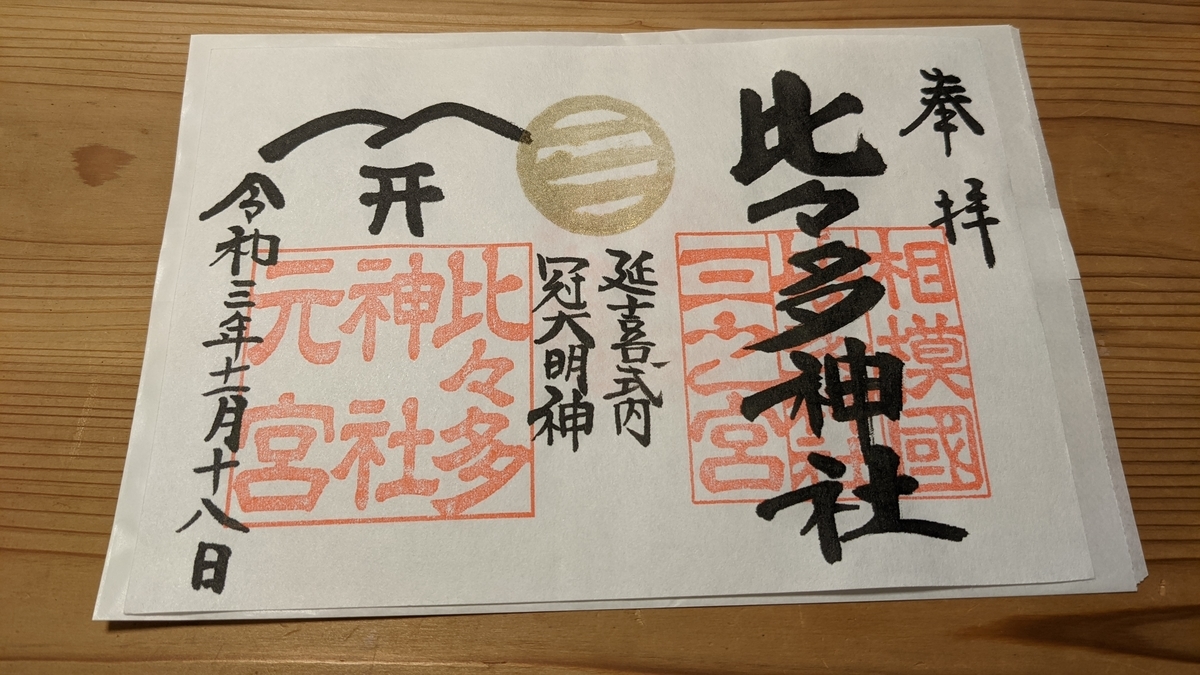 奉拝
比々多神社
相模國
三之宮
延喜式内
冠大明神
开
比々多
神社
元宮
令和三年十二月十八日